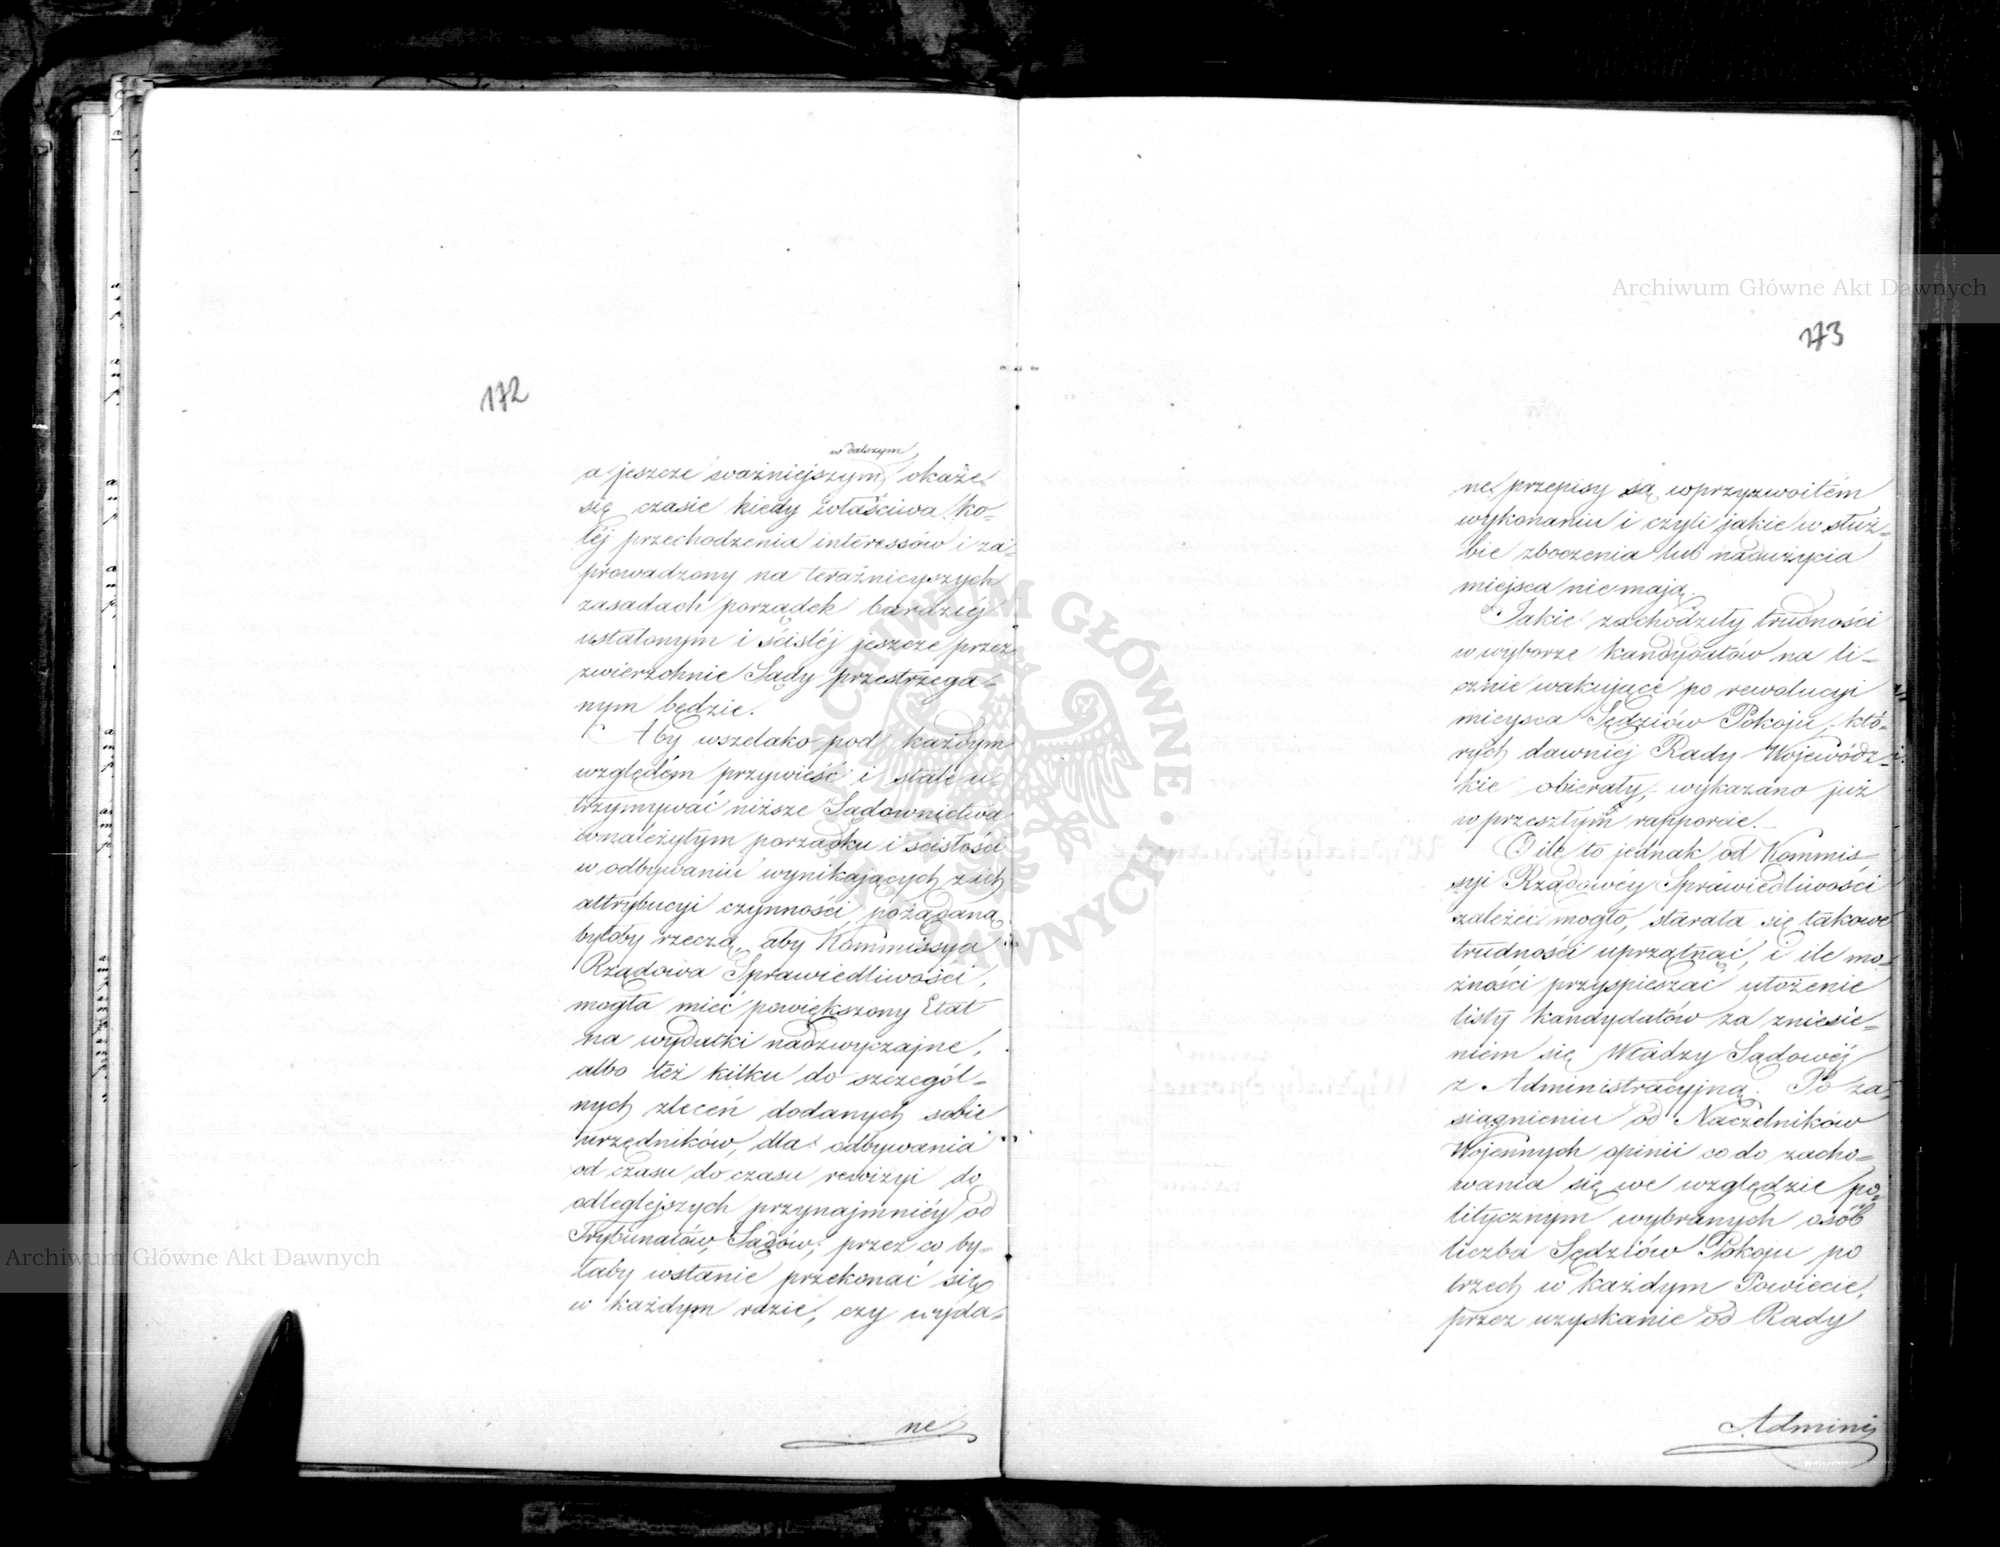 172
w dalszym
a jeszcze ważniejszym okaże
się czasie kiedy właściwa ko-
léj przechodzenia interessów i za-
prowadzony na teraźnieyszych
zasadach porządek bardziéj
ustalonym i ściśléj jeszcze przez
zwierzchnie Sądy przestrzega-
nym będzie.
Aby wszelako pod każdym
względem przywieść i stale u-
trzymywać niższe Sądownictwa
w należytym porządku i ścisłości
w odbywaniu wynikających z ich
attrybucyi czynności, pożądaną
byłoby rzeczą, aby Kommissya
Rządowa Sprawiedliwości,
mogła mieć powiększony Etat
na wydatki nadzwyczajne,
albo też kilku do szczegól-
nych zleceń dodanych sobie
urzędników, dla odbywania
od czasu do czasu rewizyi do
odleglejszych przynajmniéy od
Trybunałów, Sądów; przez co by-
łaby wstanie przekonać się
w każdym razie, czy wyda-
ne
Archiwum Główne Akt Dawnych
173
ne przepisy są w przyzwoitém
wykonaniu i czyli jakie w służ-
bie zboczenia lub nadużycia
miejsca nie mają.
Jakie zachodziły trudności
w wyborze kandydatów na li-
cznie wakujące po rewolucyi
mieysca Sędziów Pokoju, któ-
rych dawniéj Rady Wojewódz-
kie obierały, wykazano już
w przeszłym rapporcie.
O ile to jednak od Kommis-
syi Rządowéy Sprawiedliwości
zależeć mogło, starała się takowe
trudności uprzątnąć, i ile mo-
żności przyspieszać ułożenie
listy kandydatów za zniesie-
niem się Władzy Sądowéj
z Administracyjną. Po za-
siągnieniu od Naczelników
Wojennych opinii co do zacho-
wania się we względzie po-
litycznym wybranych osób
liczba Sędziów Pokoju po
trzech w każdym Powiecie,
przez uzyskanie od Rady
Admini
Archiwum Główne Akt Dawnych
ARCHIWUM GŁÓWNE AKT DAWNYCH